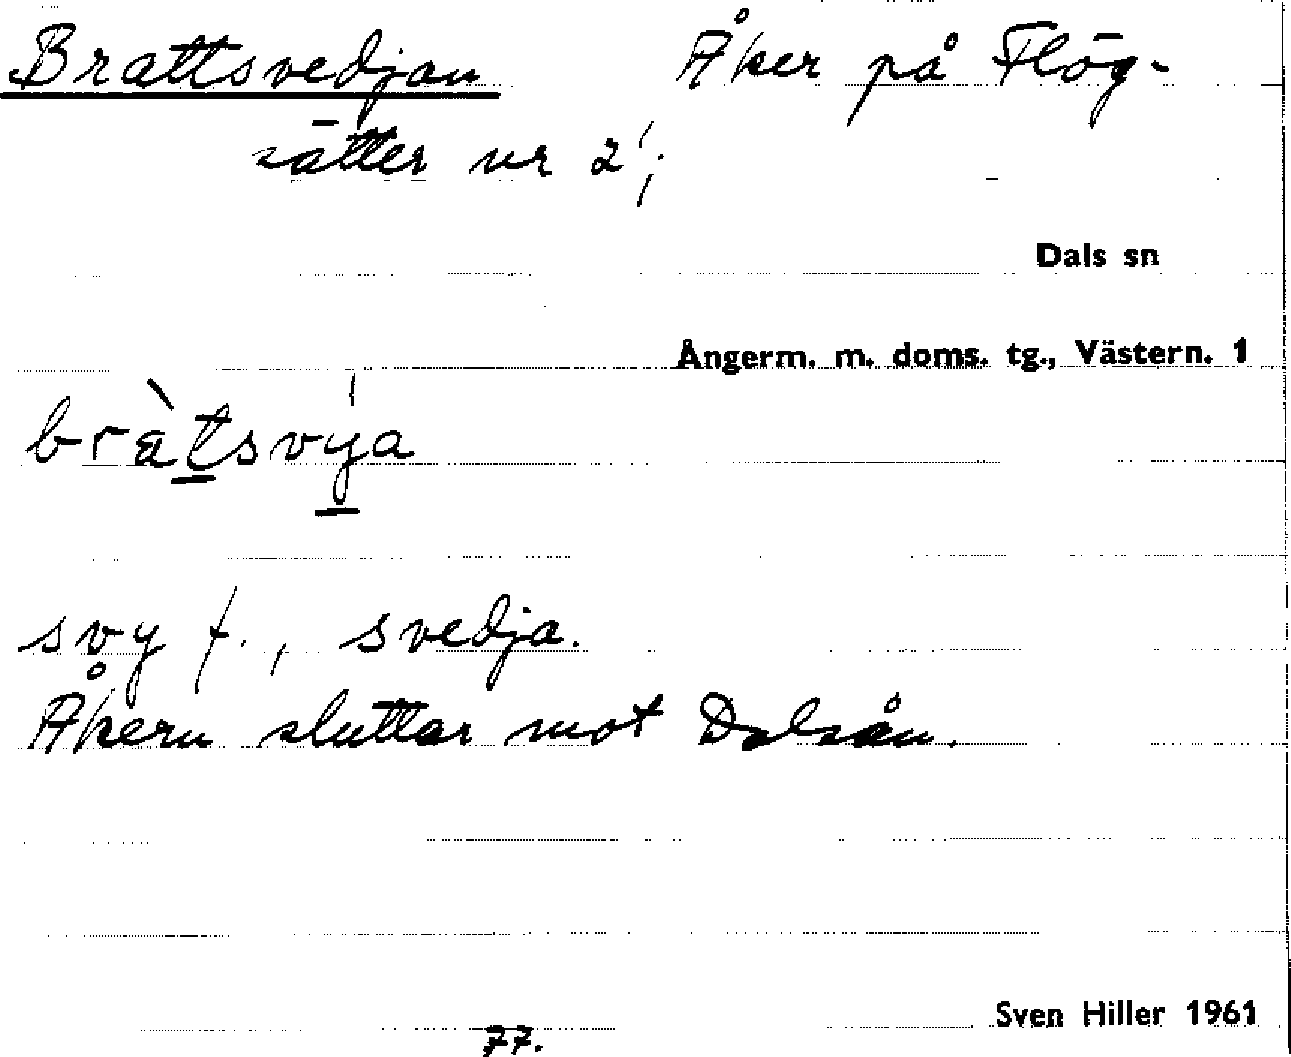 Brattsvedjan Åker på Flög-
sätter nr 2¹;
Dals sn
Ångerm. m. doms. tg., Västern. 1
bràtsvy̍a
svy f., svedja.
Åkern sluttar mot Dalsån.
Sven Hiller 1961
77.